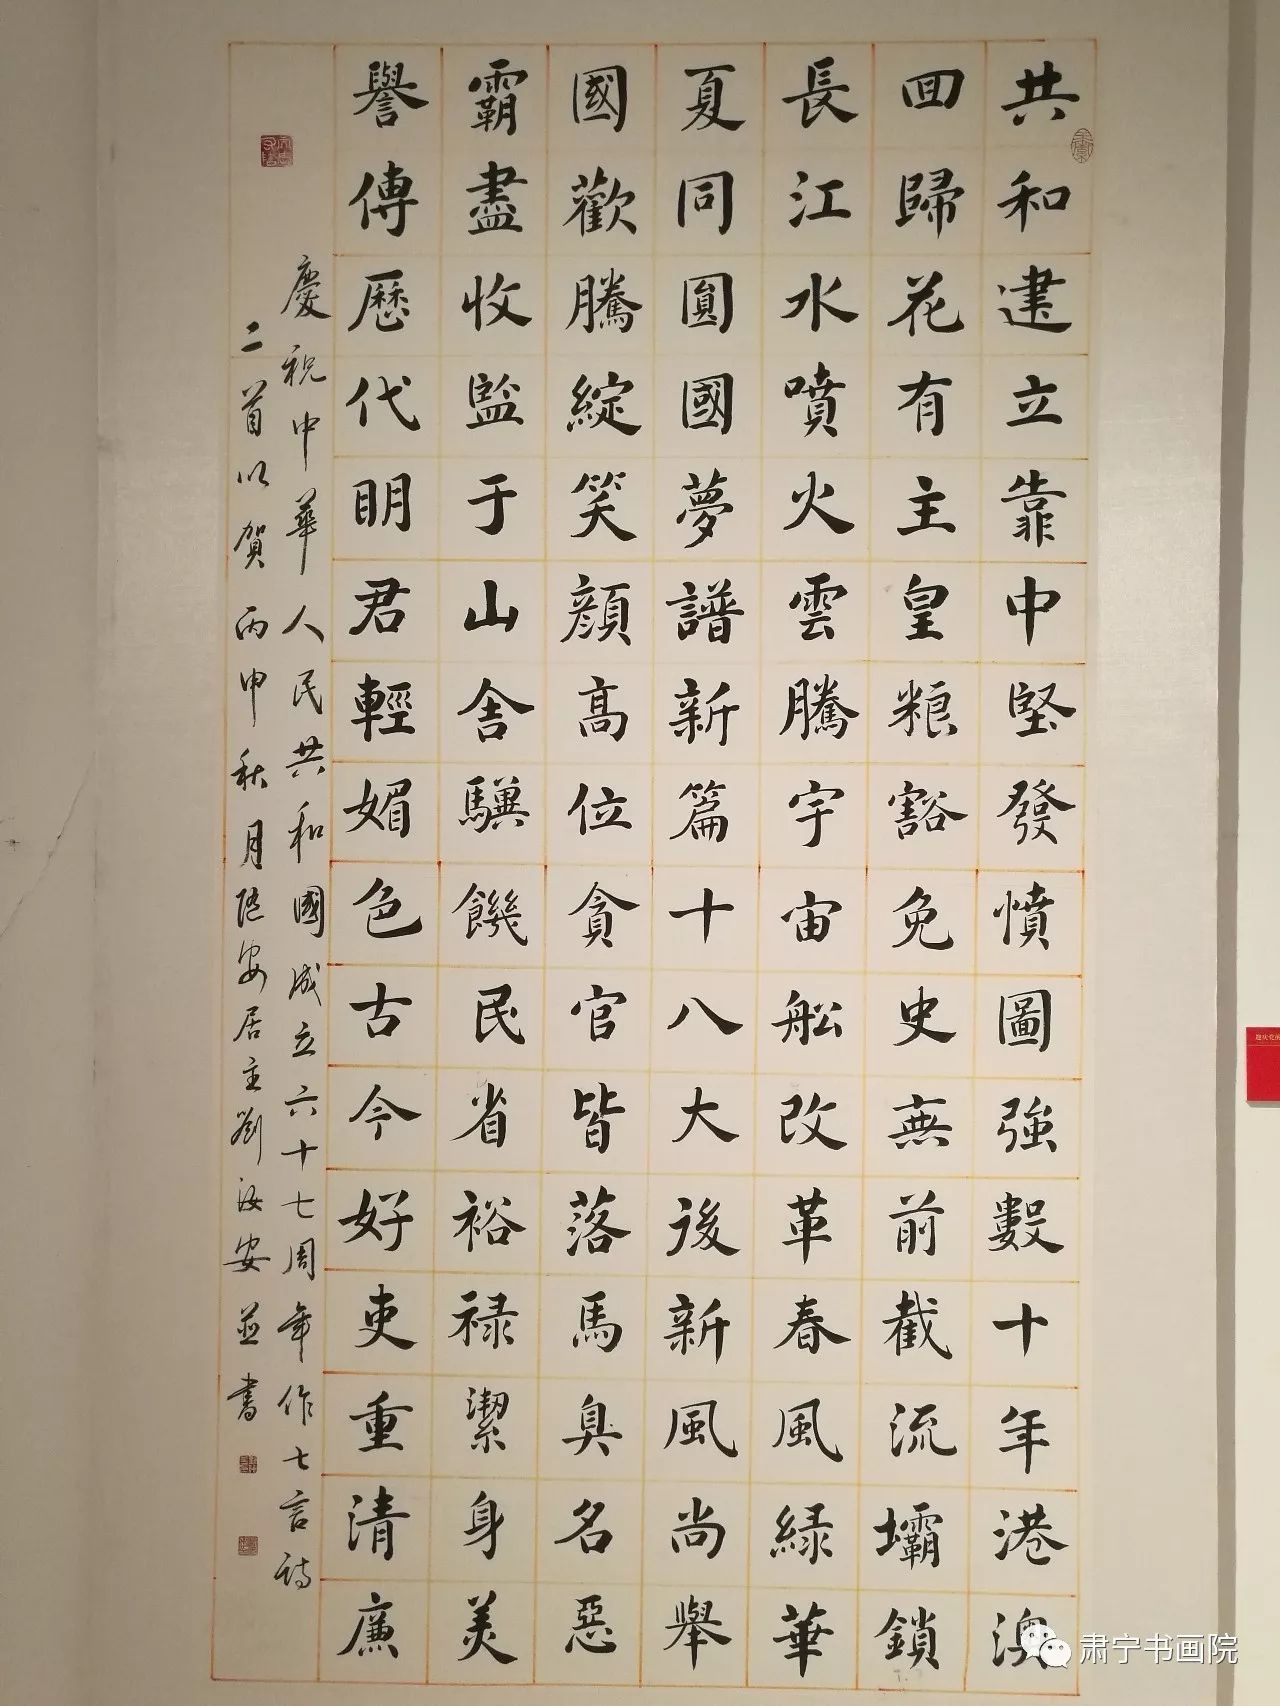 共和建立靠中堅發憤圖強數十年港澳
回歸花有主皇粮豁免史無前截流壩鎖
長江水噴火雲騰宇宙船改革春風綠華
夏同圓國夢譜新篇十八大後新風尚舉
國歡騰綻笑顔高位貪官皆落馬臭名惡
霸盡收監于山舍驥饑民省裕禄潔身美
譽傳歷代明君輕媚色古今好吏重清廉
慶祝中華人民共和國成立六十七周年作七言詩
二首以賀丙申秋月隨安居主劉汝安並書
肃宁书画院